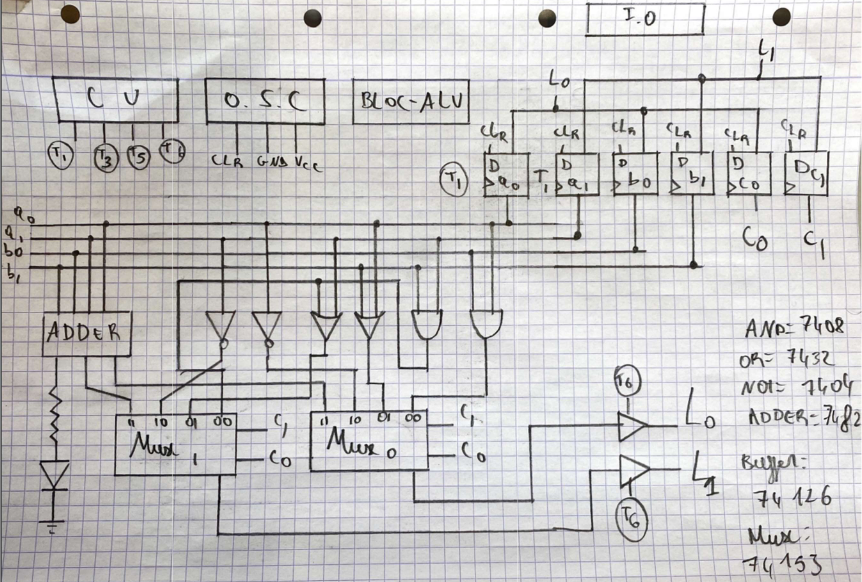 I.O
C U
O.S.C
BLOC-ALU
L0
L1
T1 T3 T5 T6
CLR GND Vcc
CLR CLR CLR CLR CLR CLR
T1 D a0 T1 D a1 D b0 D b1 D C0 D C1
C0 C1
a0
a1
b0
b1
ADDER
11 10 01 00
Mux 1
C1
C0
11 10 01 00
Mux 0
C1
C0
T6
L0
L1
T6
AND= 7408
OR= 7432
NOT= 7404
ADDER= 7482
Buffer:
74 126
Mux:
74 153